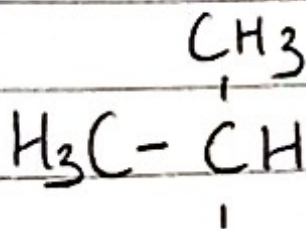 CH3
H3C- CH